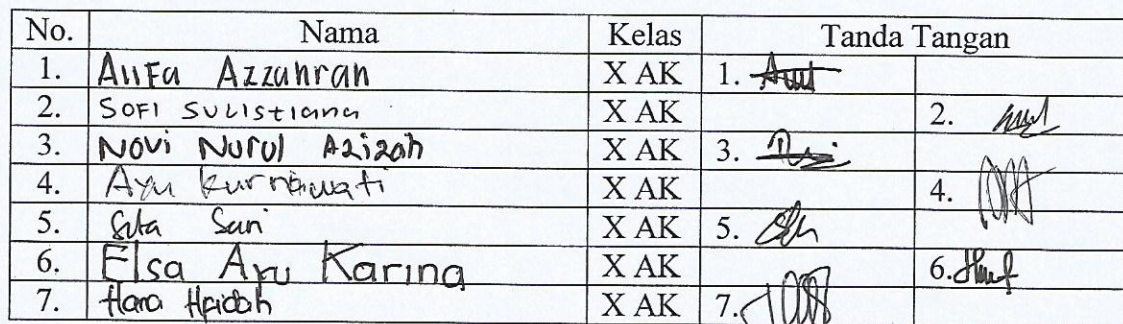 No. Nama Kelas Tanda Tangan
1. Alifa Azzahrah X AK 1.
2. Sofi Sulistiana X AK 2.
3. Novi Nurul Azizah X AK 3.
4. Ayu Kurniawati X AK 4.
5. Sita Sari X AK 5.
6. Elsa Ayu Karina X AK 6.
7. Hara X AK 7.